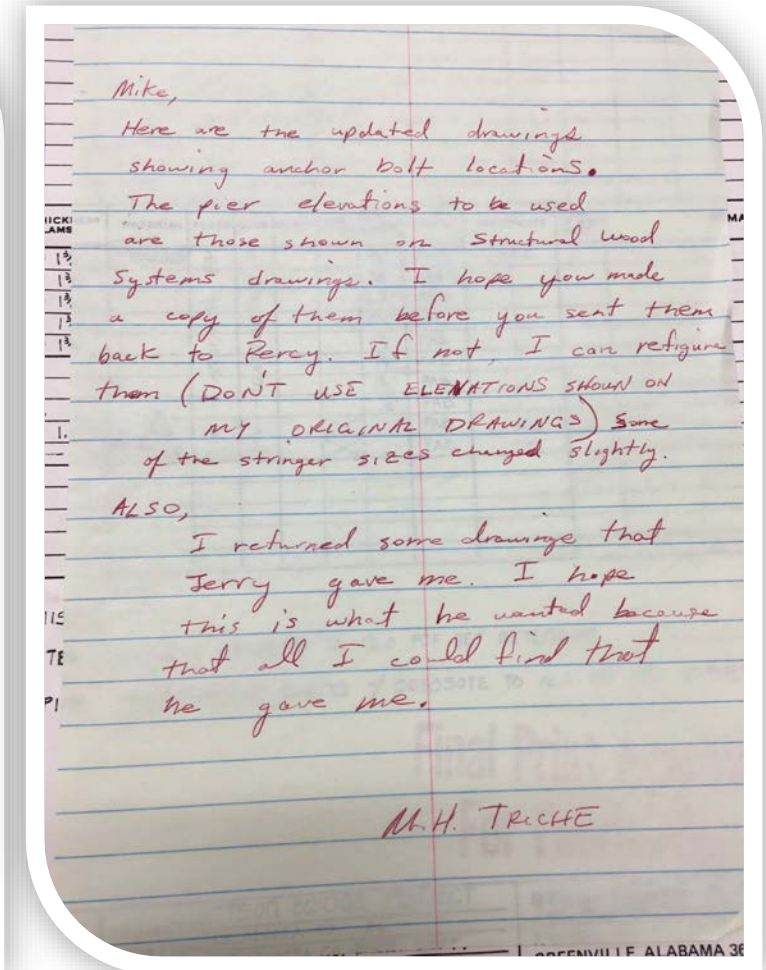 Mike,
Here are the updated drawings
showing anchor bolt locations.
The pier elevations to be used
are those shown on Structural Wood
Systems drawings. I hope you made
a copy of them before you sent them
back to Percy. If not, I can refigure
them (DON'T USE ELENATIONS SHOWN ON
MY ORIGINAL DRAWINGS) Some
of the stringer sizes changed slightly.
ALSO,
I returned some drawings that
Jerry gave me. I hope
this is what he wanted because
that all I could find that
he gave me.
M.H. TRICHE
GREENVILLE, ALABAMA 36